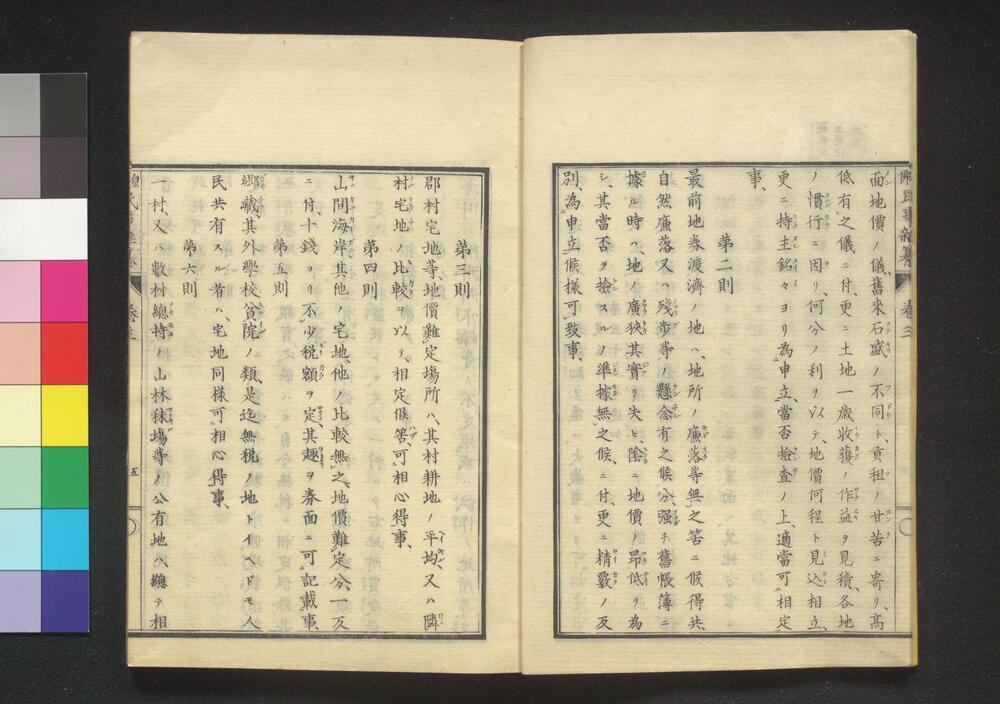 面地價ノ儀、舊來石盛ノ不同ト、貢租ノ甘苦ニ寄リ、高
低有之儀ニ付、更ニ土地一歲收獲ノ作益ヲ見積、各地
ノ慣行ニ因リ、何分ノ利ヲ以テ、地價何程ト見込相立、
更ニ持主銘々ヨリ為申立、當否檢査ノ上、適當可相定
事、
第二則
最前地券渡濟ノ地ハ、地所ノ廉落等無之筈ニ候得共、
自然廉落又ハ殘步等ノ懸念有之候分、强テ舊帳簿ニ
據ル時ハ、地ノ廣狹其實ヲ失ヒ、隂ニ地價ノ昻低ヲ為
シ、其當否ヲ撿スルノ準據無之候ニ付、更ニ精覈ノ反
別、為申立候樣可致事、
第三則
郡村宅地等、地價難定場所ハ、其村耕地ノ平均、又ハ隣
村宅地ノ比較ヲ以テ、相定候筈、可相心得事、
第四則
山間海岸其他ノ宅地、他ノ比較無之、地價難定分、一反
ニ付、十錢ヨリ不少税額ヲ定、其趣ヲ券面ニ可記載事、
第五則
鄕藏其外學校貧院ノ類、是迄無税ノ地トイヘドモ、人
民共有スル者ハ、宅地同樣可相心得事、
第六則
一村、又ハ數村總持ノ山林秣塲等ノ公有地ハ、總テ相
卷三
五